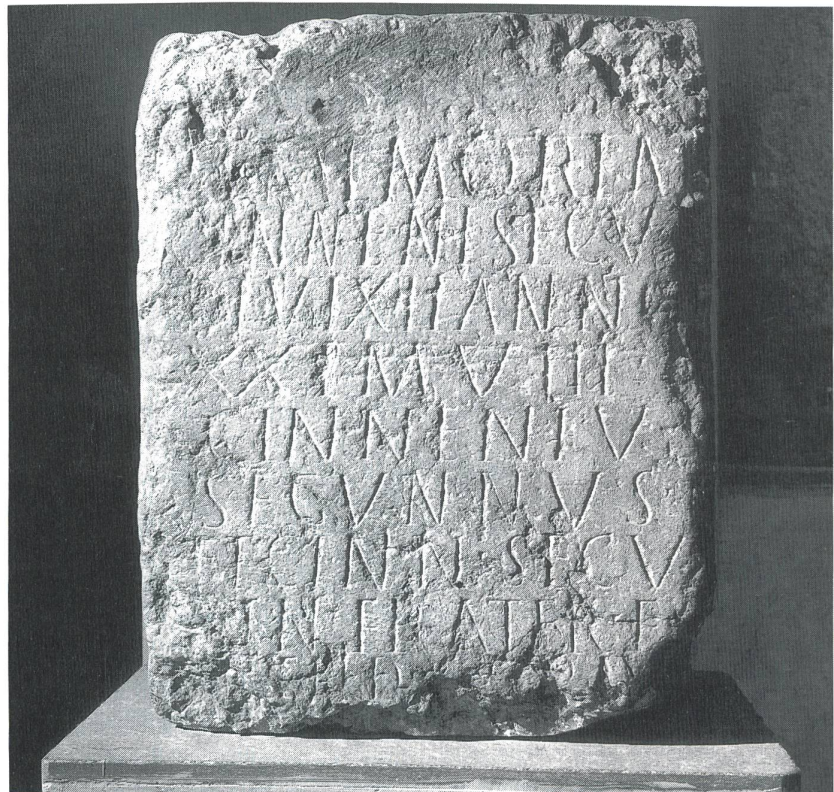 MEMORIA
INNENI SECV
I VIXIT ANN
XXI M VIII
C INNENIV
SECVNNVS
ET C INN SECV
IN FRATER F